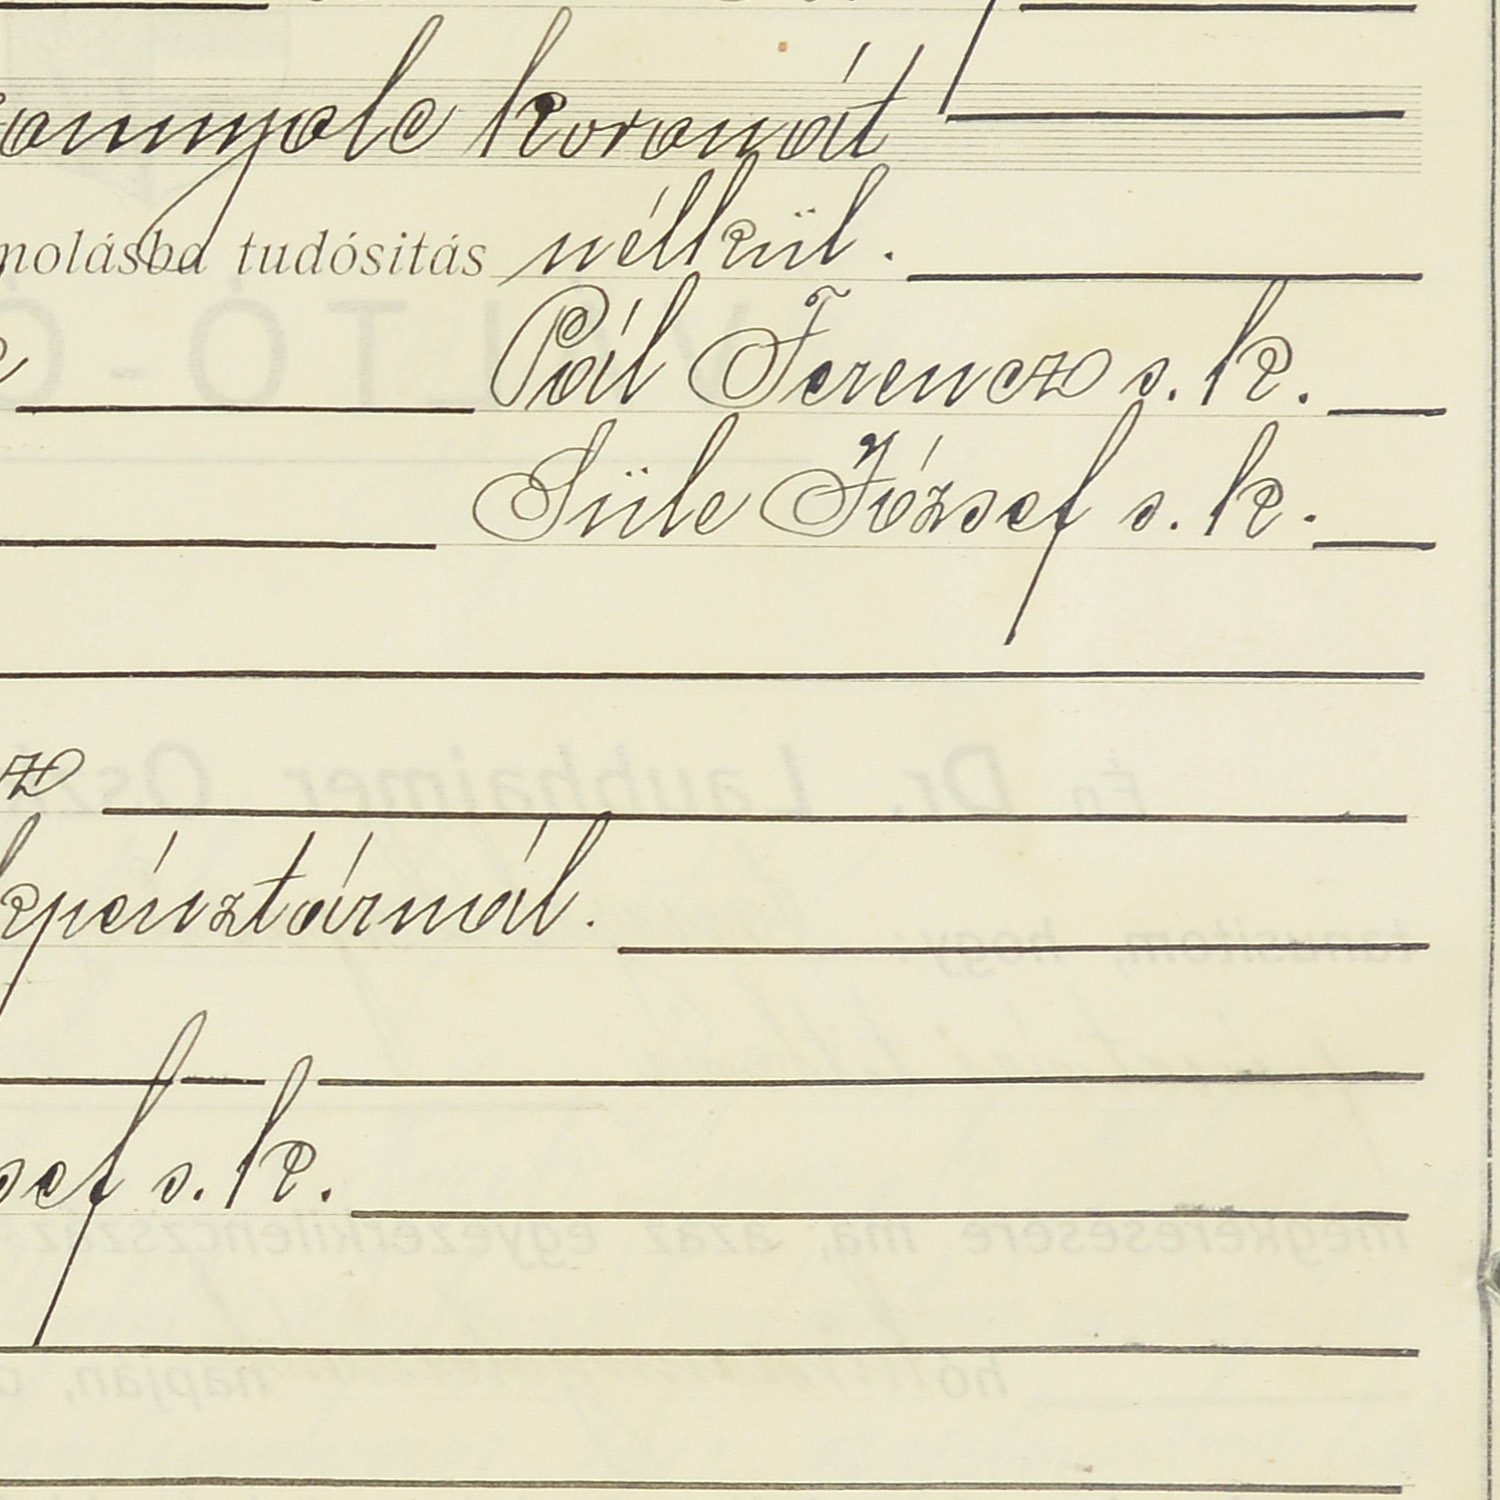 koronát
molásba tudósitás nélkül.
Pál Ferencz s. k.
Süle József s. k.
cz
kpénztárnál.
sef s. k.